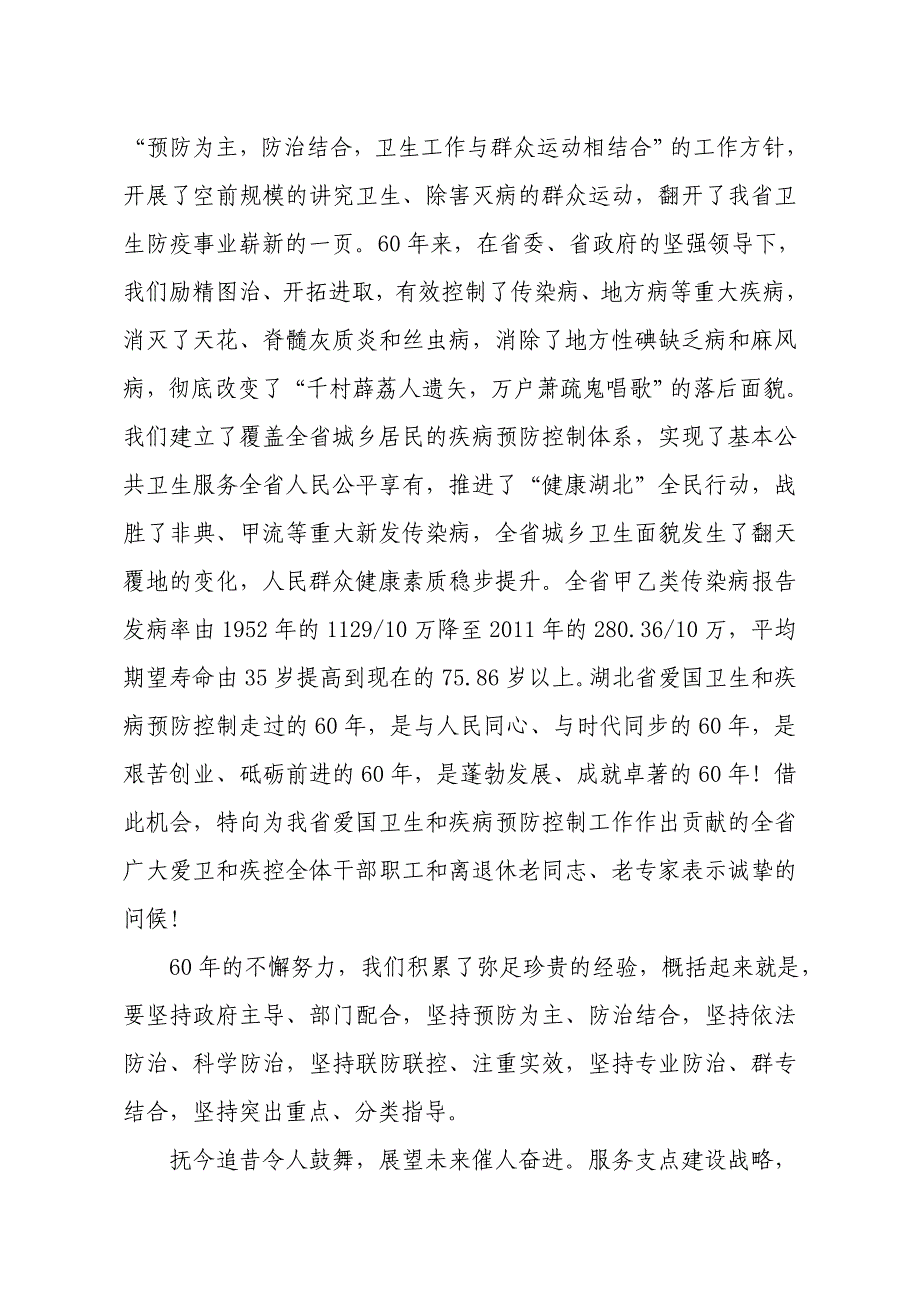 “预防为主，防治结合，卫生工作与群众运动相结合”的工作方针，
开展了空前规模的讲究卫生、除害灭病的群众运动，翻开了我省卫
生防疫事业崭新的一页。60 年来，在省委、省政府的坚强领导下，
我们励精图治、开拓进取，有效控制了传染病、地方病等重大疾病，
消灭了天花、脊髓灰质炎和丝虫病，消除了地方性碘缺乏病和麻风
病，彻底改变了“千村薜荔人遗矢，万户萧疏鬼唱歌”的落后面貌。
我们建立了覆盖全省城乡居民的疾病预防控制体系，实现了基本公
共卫生服务全省人民公平享有，推进了“健康湖北”全民行动，战
胜了非典、甲流等重大新发传染病，全省城乡卫生面貌发生了翻天
覆地的变化，人民群众健康素质稳步提升。全省甲乙类传染病报告
发病率由 1952 年的 1129/10 万降至 2011 年的 280.36/10 万，平均
期望寿命由 35 岁提高到现在的 75.86 岁以上。湖北省爱国卫生和疾
病预防控制走过的 60 年，是与人民同心、与时代同步的 60 年，是
艰苦创业、砥砺前进的 60 年，是蓬勃发展、成就卓著的 60 年！借
此机会，特向为我省爱国卫生和疾病预防控制工作作出贡献的全省
广大爱卫和疾控全体干部职工和离退休老同志、老专家表示诚挚的
问候！
60 年的不懈努力，我们积累了弥足珍贵的经验，概括起来就是，
要坚持政府主导、部门配合，坚持预防为主、防治结合，坚持依法
防治、科学防治，坚持联防联控、注重实效，坚持专业防治、群专
结合，坚持突出重点、分类指导。
抚今追昔令人鼓舞，展望未来催人奋进。服务支点建设战略，